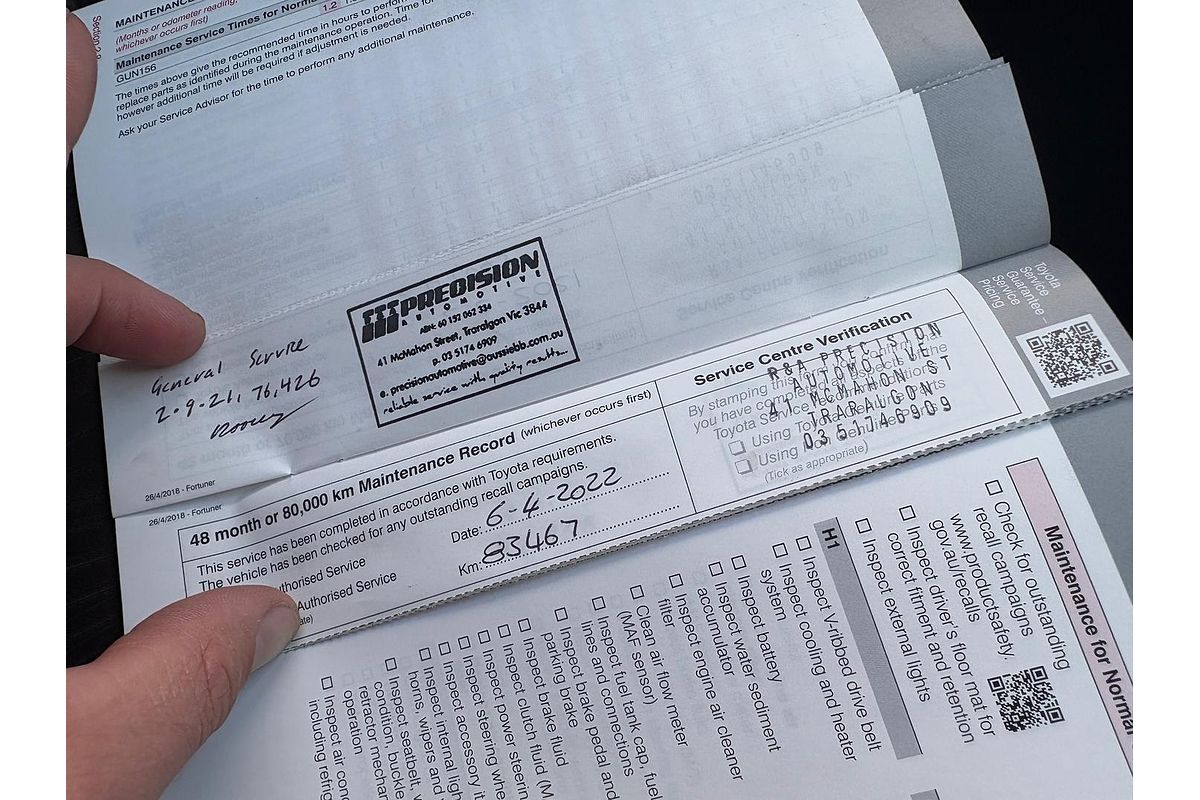 Section 2.8
MAINTENANCE
(Months or odometer reading,
whichever occurs first)
Maintenance Service Times for Norma
1.2
GUN156
The times above give the recommended time in hours to perform
replace parts as identified during the maintenance operation. Time for
however additional time will be required if adjustment is needed.
Ask your Service Advisor for the time to perform any additional maintenance.
General Service
2-9-21, 76,426
PRECISION
AUTOMOTIVE
ABN: 60 152 062 334
41 McMahon Street, Traralgon Vic 3844
p. 03 5174 6909
e. precisionautomotive@aussiebb.com.au
reliable service with quality results...
26/4/2018 - Fortuner
26/4/2018 - Fortuner
48 month or 80,000 km Maintenance Record (whichever occurs first)
This service has been completed in accordance with Toyota requirements.
The vehicle has been checked for any outstanding recall campaigns.
Date: 6-4-2022
Km: 83467
uthorised Service
Authorised Service
Service Centre Verification
By stamping this
you have completed all aspects of the
Toyota Service recommendations
Using Toyota Genuine Parts
Using Non Genuine Parts
(Tick as appropriate)
R&A PRECISION
AUTOMOTIVE
41 MCMAHON ST
TRARALGON
03 5174 6909
Toyota
Service
Guarantee –
Service
Pricing
Maintenance for Normal
Check for outstanding
recall campaigns
www.productsafety.
gov.au/recalls
Inspect driver's floor mat for
correct fitment and retention
Inspect external lights
H1
Inspect V-ribbed drive belt
Inspect cooling and heater
system
Inspect battery
Inspect water sediment
accumulator
Inspect engine air cleaner
filter
Clean air flow meter
(MAF sensor)
Inspect fuel tank cap, fuel
lines and connections
Inspect brake pedal and
parking brake
Inspect brake fluid
Inspect clutch fluid (M
Inspect power steerin
Inspect steering whe
Inspect accessory it
Inspect internal ligh
horns, wipers and
Inspect seatbelt,
condition, buckle
retractor mechan
operation
Inspect air con
including refrig